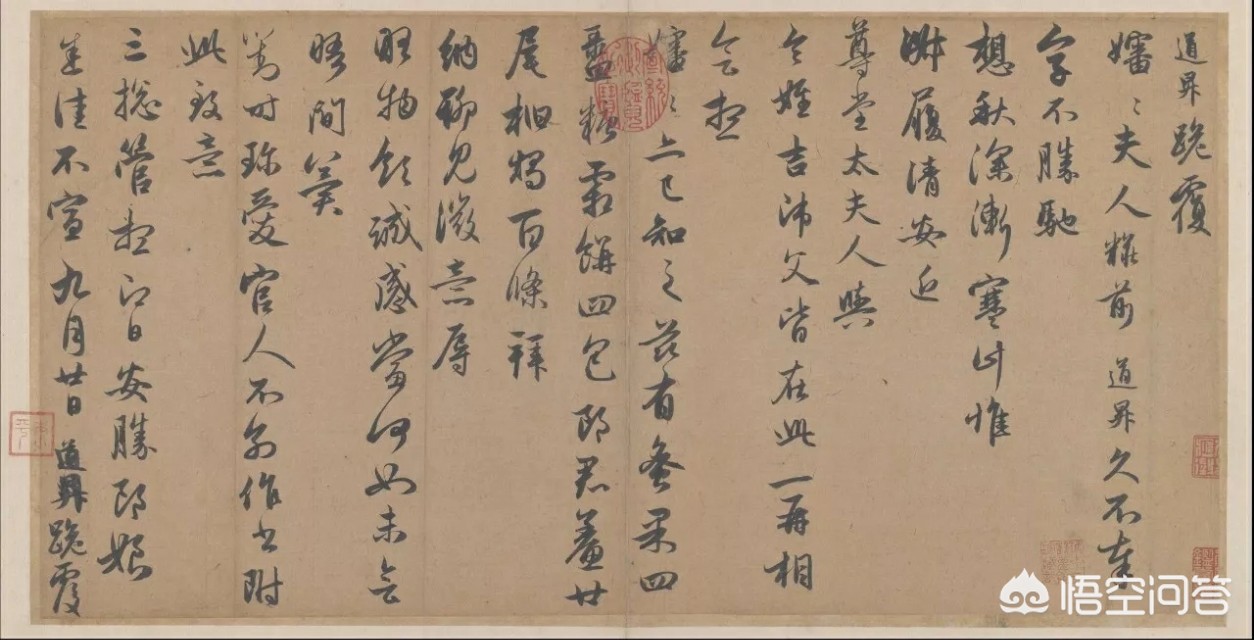 道昇跪覆
嬸〻夫人粧前 道昇久不奉
字不勝馳
想秋深漸寒計惟
淑履清安近
尊堂太夫人與
令姪吉師父皆在此一再相
會想
嬸〻亦已知之茲有蜜果四
盝糖霜餅四包郎君鯗廿
尾桕燭百條拜
納聊見微意辱
物領誠感當何如未會
晤間冀
對時珍愛官人不別作書附
此致意
三總管想即日安勝郎娘
悉佳不宣 九月廿日 道昇跪覆
悟空问答